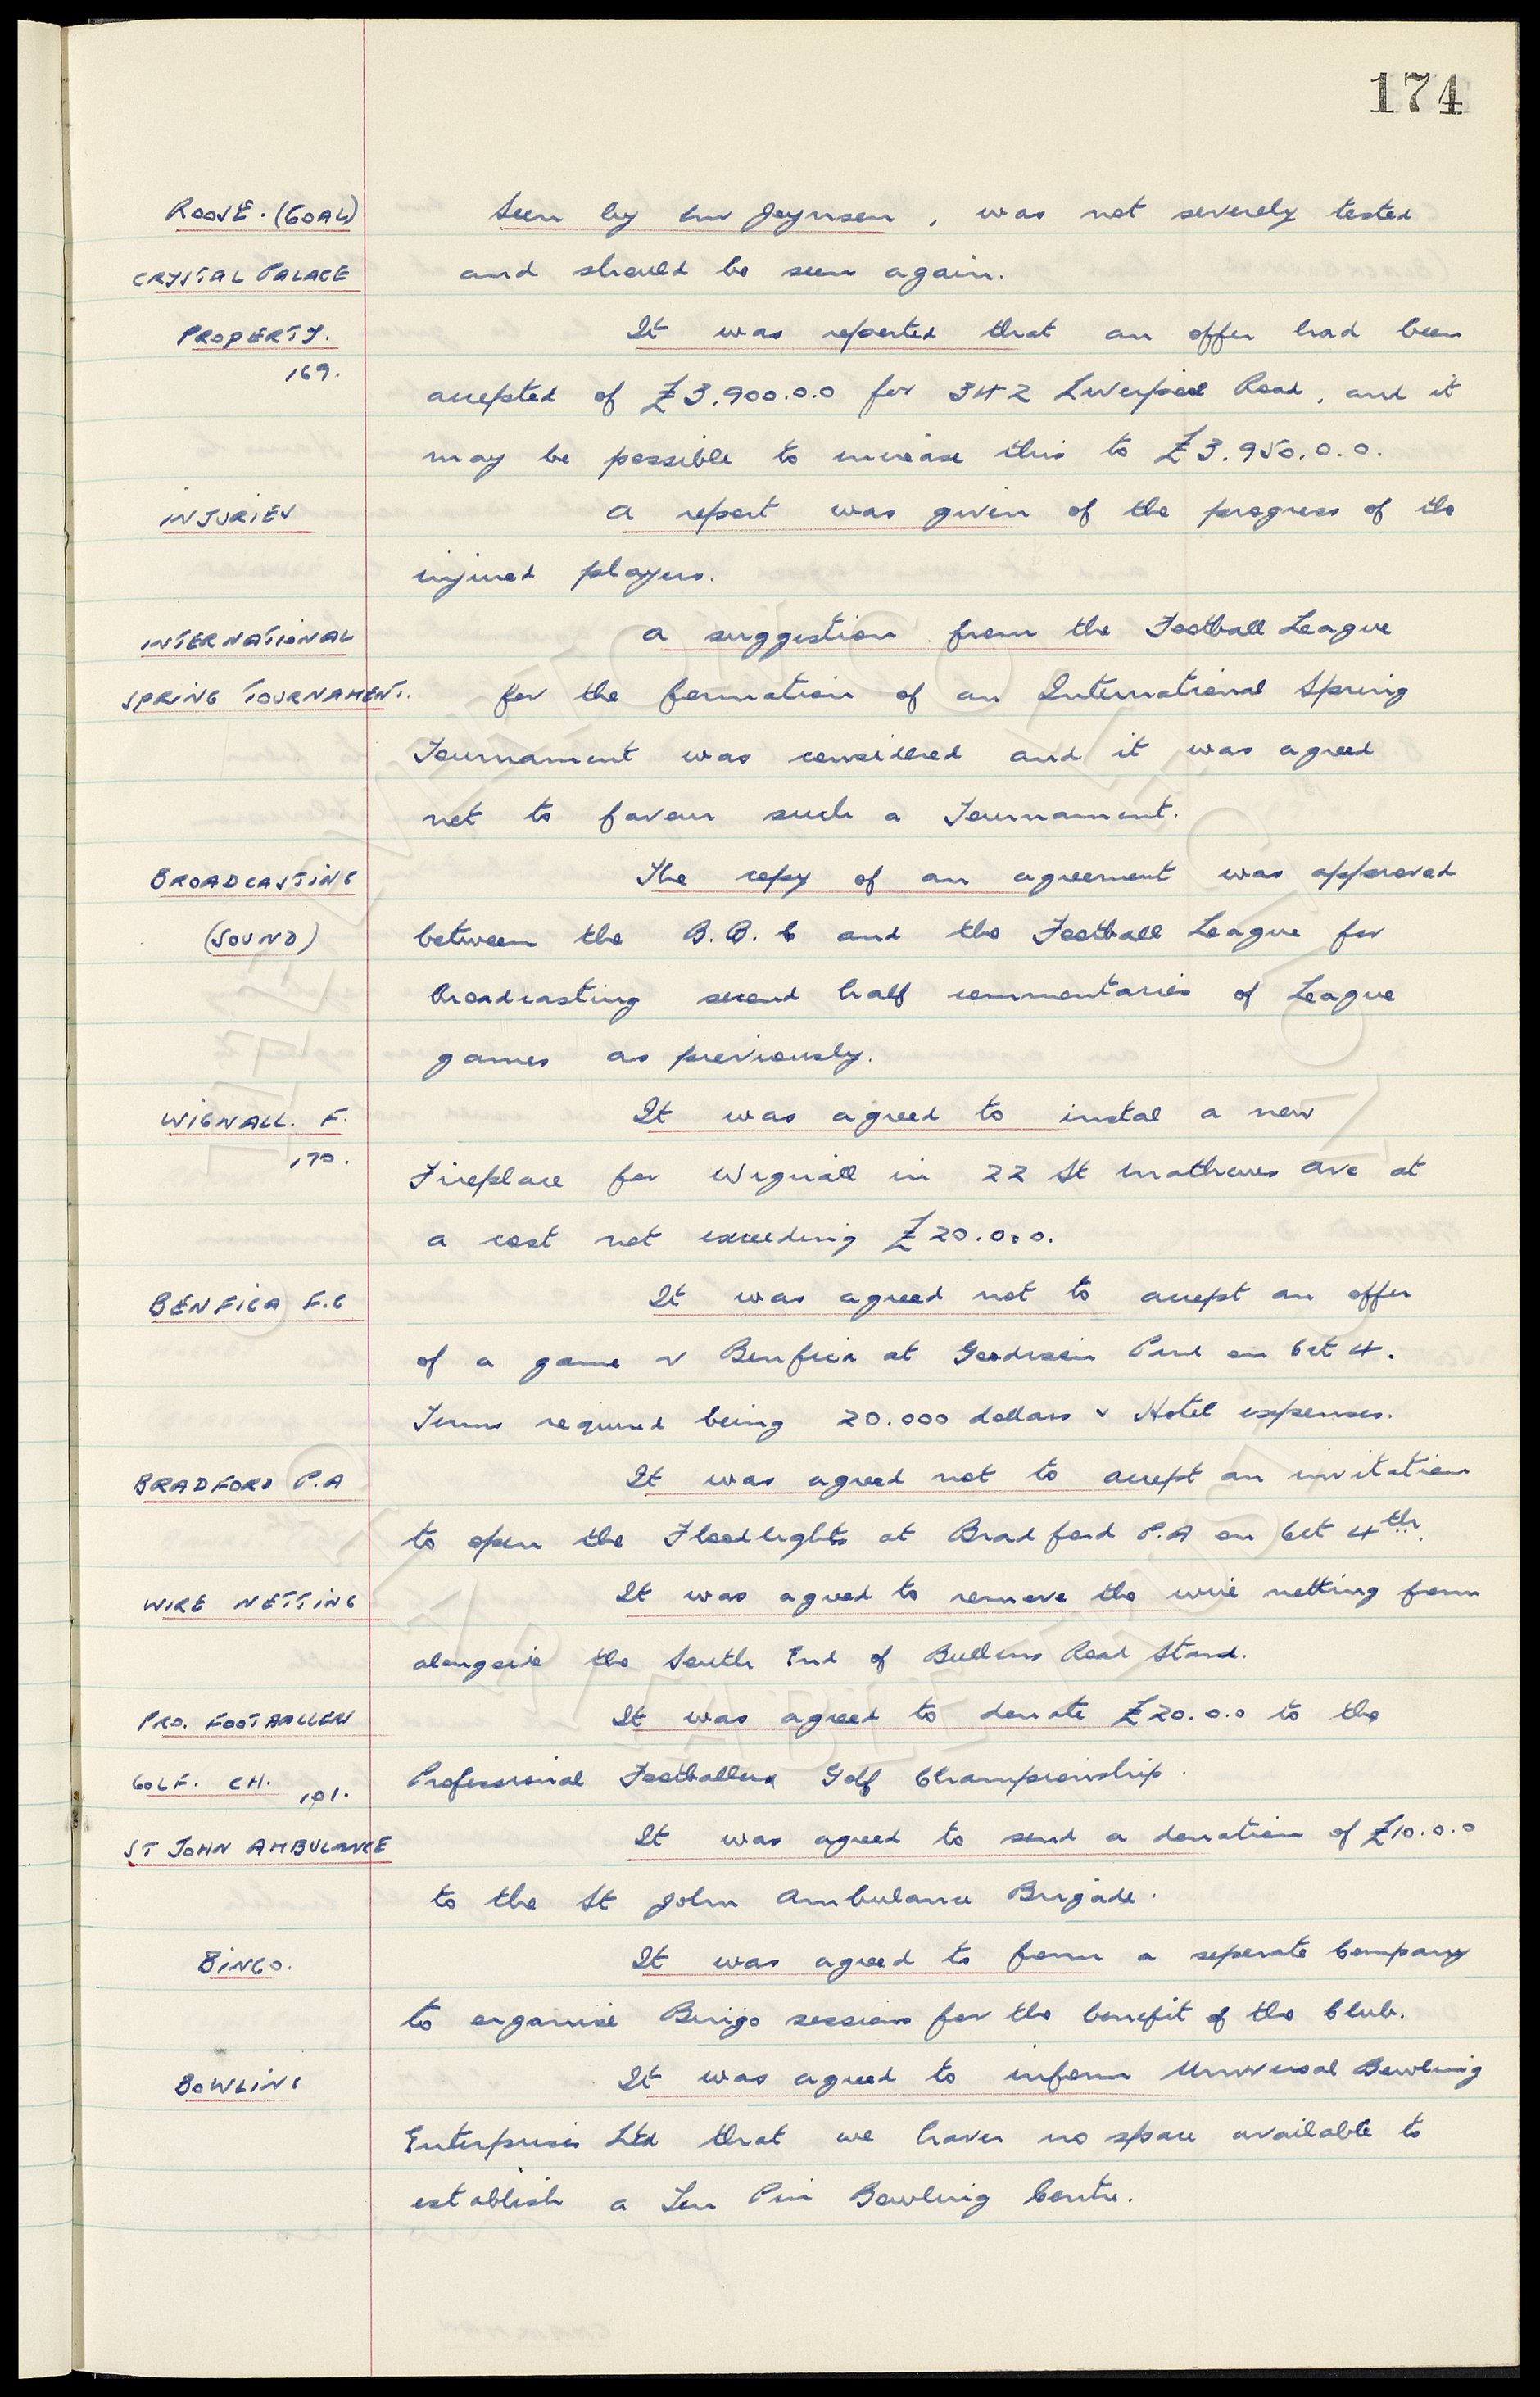 174
ROOVE. (GOAL) Seen by Mr Joynsen, was not severely tested
CRYSTAL PALACE and should be seen again.
PROPERTY. It was reported that an offer had been
169.
accepted of £3.900.0.0 for 342 Liverpool Road, and it
may be possible to increase this to £3.950.0.0.
INJURIES A report was given of the progress of the
injured players.
INTERNATIONAL A suggestion from the Football League
SPRING TOURNAMENT. for the formation of an International Spring
Tournament was considered and it was agreed
not to favour such a Tournament.
BROADCASTING The copy of an agreement was approved
(SOUND) between the B.B.C and the Football League for
broadcasting second half commentaries of League
games as previously.
WIGNALL. F. It was agreed to instal a new
170.
Fireplace for Wignall in 22 St Mathews Ave at
a cost not exceeding £20.0.0.
BENFICA F.C It was agreed not to accept an offer
of a game v Benfica at Goodison Park on Oct 4.
Terms required being 20.000 dollars & Hotel expenses.
BRADFORD P.A It was agreed not to accept an invitation
to open the Floodlights at Bradford P.A on Oct 4th.
WIRE NETTING It was agreed to remove the wire netting from
alongside the South End of Bullens Road Stand.
PRO. FOOTBALLERS It was agreed to donate £20.0.0 to the
GOLF. CH. Professional Footballers Golf Championship.
ST JOHN AMBULANCE It was agreed to send a donation of £10.0.0
to the St John Ambulance Brigade.
BINGO. It was agreed to form a seperate Company
to organise Bingo sessions for the benefit of the Club.
BOWLING It was agreed to inform Universal Bowling
Enterprises Ltd that we have no space available to
establish a Ten Pin Bowling Centre.